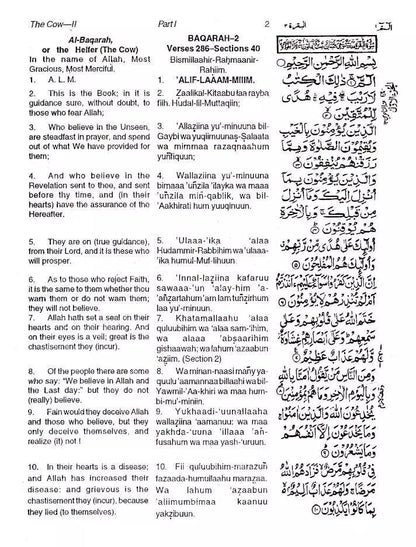 The Cow—II
Part I
2
البقرة ٢
Al-Baqarah,
or the Heifer (The Cow)
In the name of Allah, Most
Gracious, Most Merciful.
1. A. L. M.
2. This is the Book; in it is
guidance sure, without doubt, to
those who fear Allah;
3. Who believe in the Unseen,
are steadfast in prayer, and spend
out of what We have provided for
them;
4. And who believe in the
Revelation sent to thee, and sent
before thy time, and (in their
hearts) have the assurance of the
Hereafter.
5. They are on (true guidance),
from their Lord, and it is these who
will prosper.
6. As to those who reject Faith,
it is the same to them whether thou
warn them or do not warn them;
they will not believe.
7. Allah hath set a seal on their
hearts and on their hearing. And
on their eyes is a veil; great is the
chastisement they (incur).
8. Of the people there are some
who say: "We believe in Allah and
the Last day:" but they do not
(really) believe.
9. Fain would they deceive Allah
and those who believe, but they
only deceive themselves, and
realize (it) not !
10. In their hearts is a disease;
and Allah has increased their
disease; and grievous is the
chastisement they (incur), because
they lied (to themselves).
BAQARAH–2
Verses 286–Sections 40
Bismillaahir-Raḥmaanir-
Raḥiim.
1. 'ALIF-LAAAM-MIIIM.
2. Zaalikal-Kitaabu laa rayba
fiih. Hudal-lil-Muttaqiin;
3. 'Allaẕiina yu'-minuuna bil-
Gaybi wa yuqiimuunaṣ-Ṣalaata
wa mimmaa razaqnaahum
yuñfiquun;
4. Wallaziina yu'-minuuna
bimaaa 'uñzila 'ilayka wa maaa
'uñzila miñ-qablik, wa bil-
'Aakhirati hum yuuqinuun.
5. 'Ulaaa-'ika 'alaa
Hudammir-Rabbihim wa 'ulaaa-
'ika humul-Muf-liḥuun.
6. 'Innal-laẕiina kafaruu
sawaaa-'un 'alay-him 'a-
'añẕartahum 'am lam tuñẕirhum
laa yu'-minuun.
7. Khatamallaahu 'alaa
quluubihim wa 'alaa sam-'ihim,
wa 'alaaa 'abṣaarihim
gishaawah; wa lahum 'aẕaabun
'aẓiim. (Section 2)
8. Wa minan-naasi mañy ya-
quulu 'aamannaa billaahi wa bil-
Yawmil-'Aa-khiri wa maa hum-
bi-mu'-miniin.
9. Yukhaadi-'uunallaaha
wallaẕiina 'aamanuu; wa maa
yakhda-'uuna 'illaaa 'añ-
fusahum wa maa yash-'uruun.
10. Fii quluubihim-maraẓun
fazaada-humullaahu maraẓaa.
Wa lahum 'aẕaabun
'aliimumbimaa kaanuu
yakẕibuun.
بسم الله الرحمن الرحيم
الم ذلك الكتب
لا ريب فيه هدى
للمتقين
الذين يؤمنون بالغيب
ويقيمون الصلوة ومما
رزقنهم ينفقون
والذين يؤمنون بما
انزل اليك وما انزل
من قبلك وبالاخرة
هم يوقنون
اولئك على هدى من ربهم
واولئك هم المفلحون